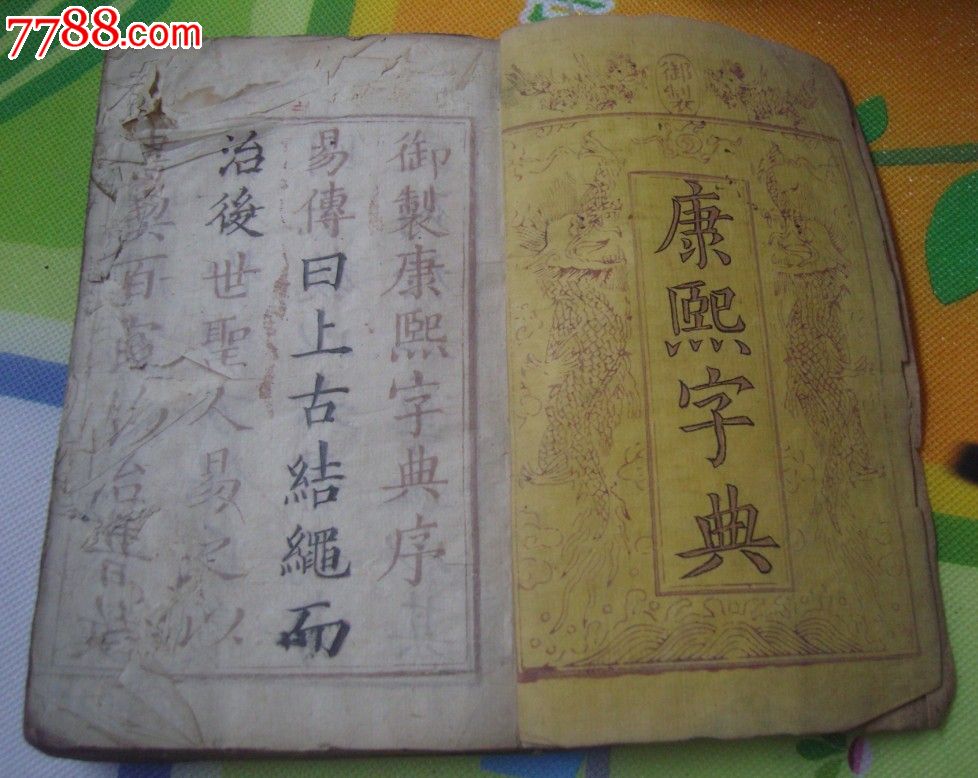 7788.com
御製
康熙字典
御製康熙字典序
易傳曰上古結繩而
治後世聖人易之以
書契百官以治萬